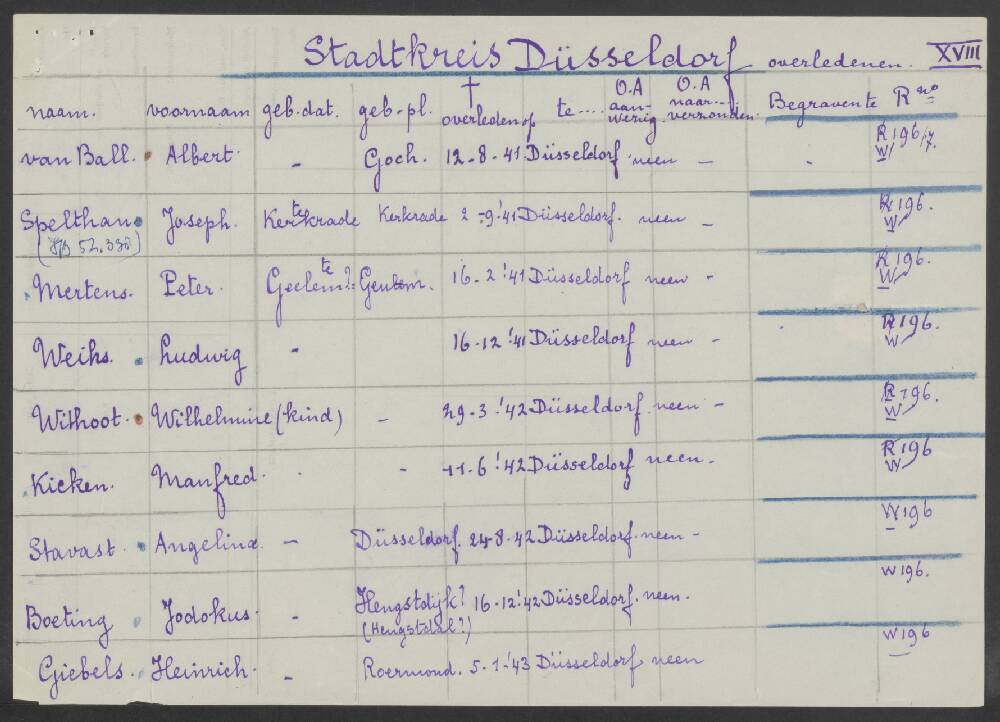 Stadtkreis Düsseldorf overledenen. XVIII
naam. voornaam geb.dat. geb-pl. † overleden op te .... O.A aan-wezig O.A naar.... verzonden. Begraven te R no
van Ball. Albert. - Goch. 12-8-41 Düsseldorf neen - R 196/7. W
Spelthan Joseph. te Kerkrade Kerkrade 2-9-'41 Düsseldorf. neen - R 196. W
(JB 52.338)
Mertens. Peter. te Geelem?= Geulem. 16-2-'41 Düsseldorf neen - R 196. W
Weihs. Ludwig - 16-12-'41 Düsseldorf neen - R 196. W
Withoot. Wilhelmine (kind) - 29-3-'42 Düsseldorf. neen - R 196. W
Kicken. Manfred. - 11-6-'42 Düsseldorf neen. - R 196 W
Stavast. Angelina. - Düsseldorf. 24-8-42 Düsseldorf. neen - W 196
Boeting Jodokus. - Hengstdijk? 16-12-'42 Düsseldorf. neen. W 196.
(Hengstdal?)
Giebels. Heinrich. - Roermond. 5-1-'43 Düsseldorf neen W 196